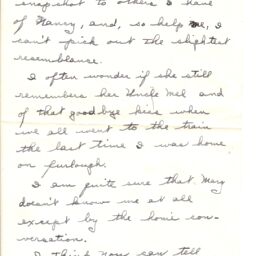 snapshot to others I have
of Nancy, and, so help me, I
can't pick out the slightest
resemblance.
I often wonder if she still
remembers her Uncle Mel and
of that good bye kiss when
we all went to the train
the last time I was home
on furlough.
I am quite sure that Mary
doesn't know me at all
except by the home con-
versation.
I think now can tell